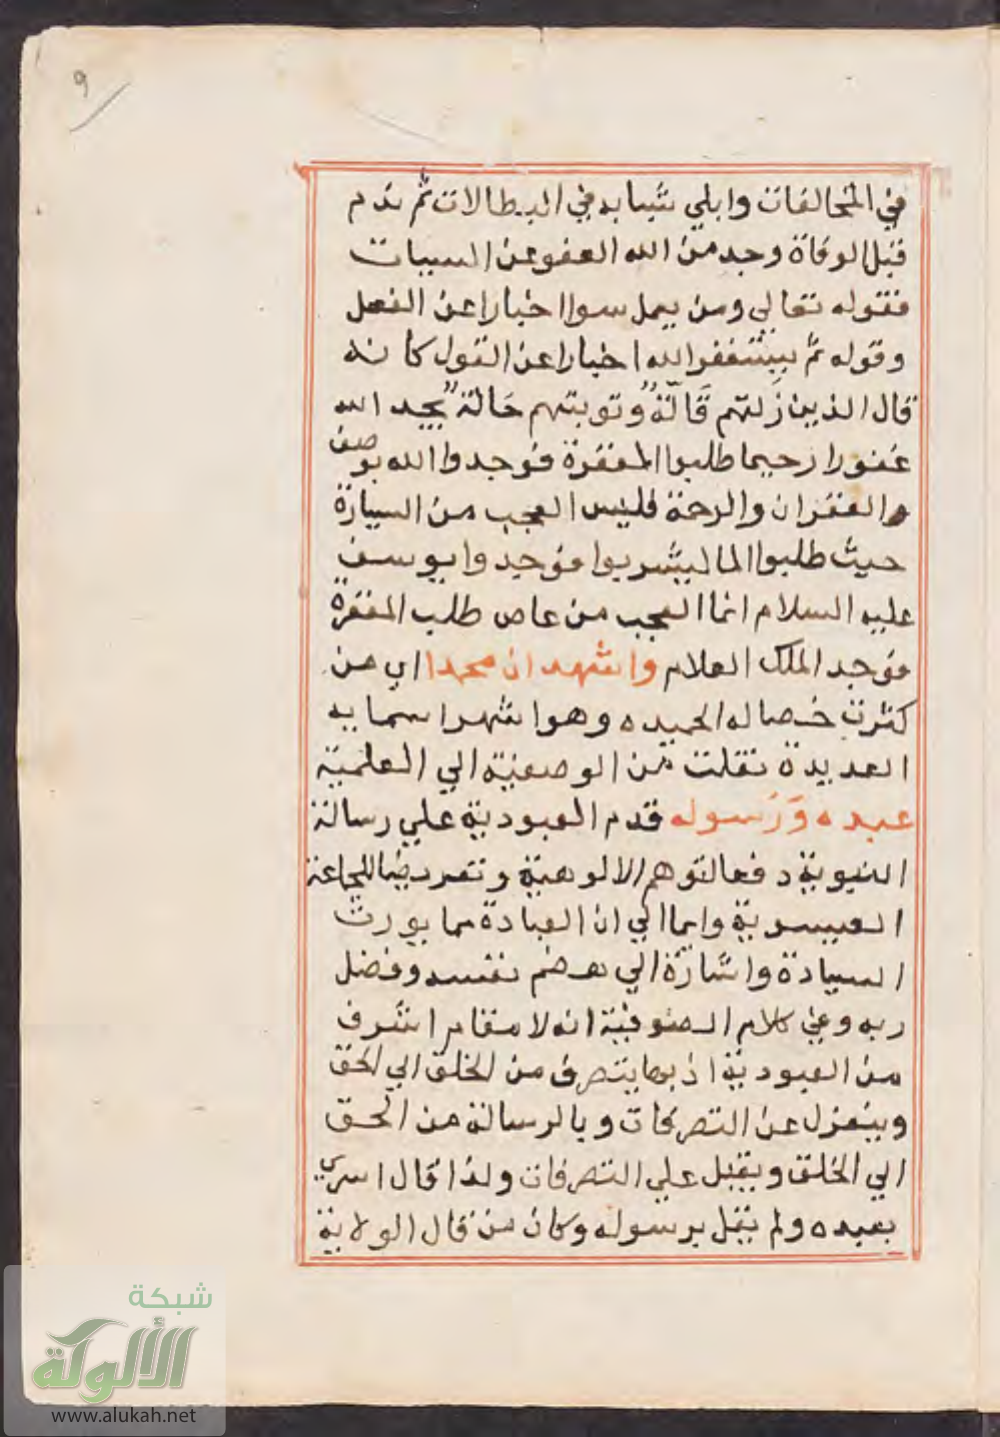 ٩
في المخالفات وابلي شبابه في البطالات ثم ندم
قبل الوفاة وجد من الله العفو عن السيبات
فقوله تعالي ومن يعمل سوا اخبارا عن الفعل
وقوله ثم يستغفر الله اخبارا عن القول كانه
قال الذين زلتهم قالة وتوبتهم حالة يجد الله
غفورا رحيما طلبوا المغفرة فوجدوا الله بوصف
والغفران والرحمة فليس العجب من السيارة
حيث طلبوا الما ليشربوا فوجدوا يوسف
عليه السلام انما العجب من عاص طلب المغفرة
فوجد الملك العلام واشهد ان محمدا اي من
كثرت خصاله الحميده وهو اشهر اسمايه
العديدة نقلت من الوصفية الي العلمية
عبده ورسوله قدم العبودية علي رسالة
النبوية دفعا لتوهم الالوهية وتعريضا للجماعة
العيسوية وايما الي ان العبادة مما يورث
السيادة واشارة الي هضم نفسه وفضل
ربه وفي كلام الصوفية انه لا مقام اشرف
من العبودية اذ بها ينصرف من الخلق الي الحق
وينعزل عن التصرفات وبالرسالة من الحق
الي الخلق ويقبل علي التصرفات ولذا قال اسري
بعبده ولم يقل برسوله وكان من قال الولاية
شبكة
الألوكة
www.alukah.net